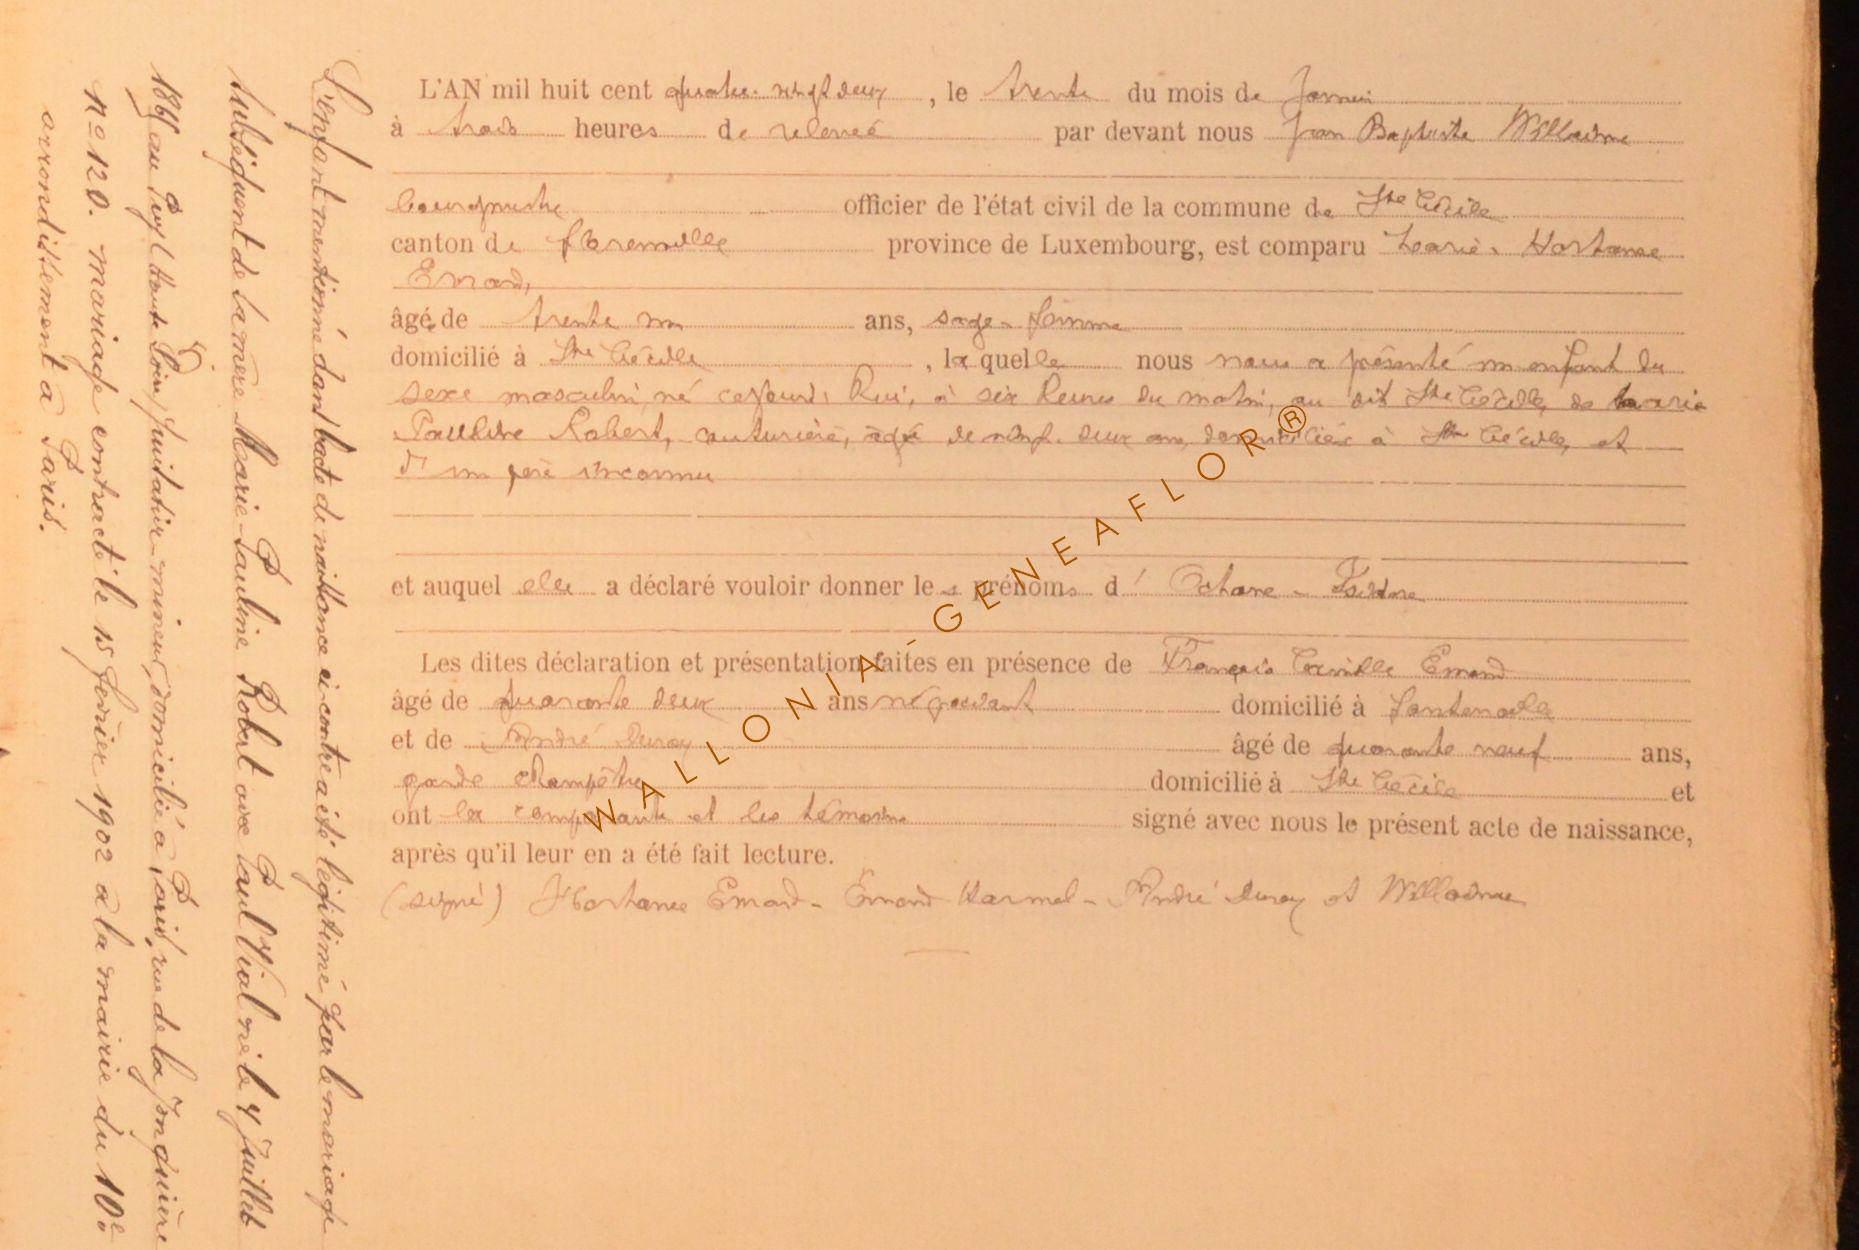 L'AN mil huit cent quatre-vingt deux, le trente du mois de Janvier
à trois heures de relevée par devant nous Jean Baptiste Willaime
bourgmestre officier de l'état civil de la commune de Ste Cécile
canton de Florenville province de Luxembourg, est comparu Marie-Hortense
Emond,
âgée de trente un ans, sage-femme
domicilié à Ste Cécile, laquelle nous nous a présenté un enfant du
sexe masculin, né cejourd'hui, à six heures du matin, au dit Ste Cécile, de Marie
Pauline Robert, couturière, âgée de vingt-deux ans, domiciliée à Ste Cécile, et
d'un père inconnu
et auquel elle a déclaré vouloir donner les prénoms d'Octave-Isidore
Les dites déclaration et présentation faites en présence de François Camille Emond
âgé de quarante deux ans négociant domicilié à Fontenoille
et de André Duroy âgé de quarante neuf ans,
garde champêtre domicilié à Ste Cécile et
ont la comparante et les témoins signé avec nous le présent acte de naissance,
après qu'il leur en a été fait lecture.
(signé) Hortense Emond - Emond Harmel - André Duroy et Willaime
L'enfant mentionné dans l'acte de naissance ci-contre a été légitimé par le mariage
subséquent de la mère Marie-Pauline Robert avec Paul Vial né le 4 juillet
au Puy (Haute Loire), domicilié à Paris, rue de la
n° 120. mariage contracté le 15 février 1902 à la mairie du 10e
arrondissement à Paris.
WALLONIA-GENEAFLOR®